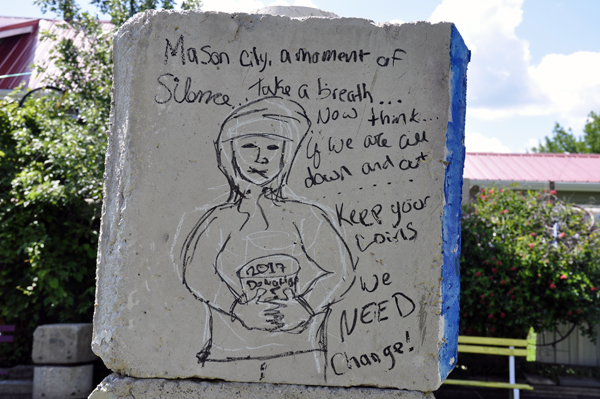 Mason city, a moment of
Silence.. Take a breath...
Now think...
if we are all
down and out
.....
Keep your
Coins
We
NEED
Change!
2017